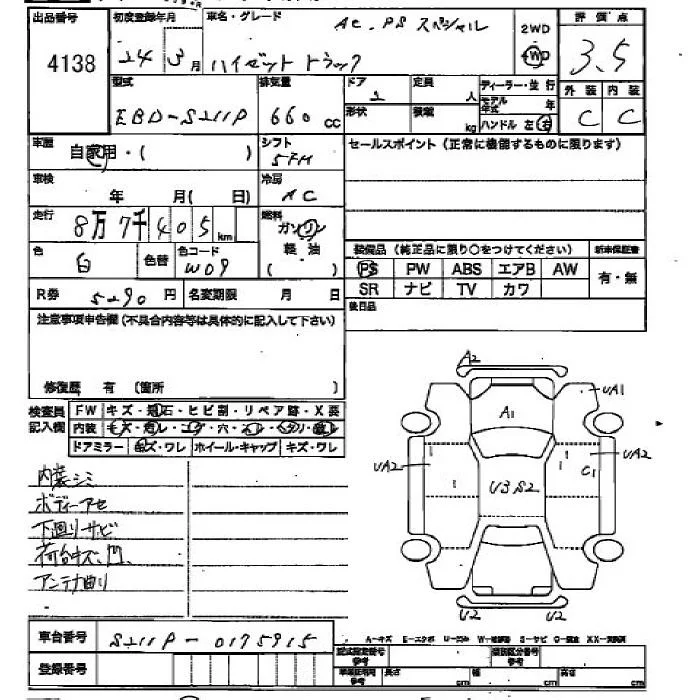 出品番号 初度登録年月 車名・グレード AC.PS スペシャル 2WD 評価点
4138 24 3月 ハイゼット トラック 4WD 3.5
型式 排気量 ドア 定員 ディーラー・並行 外装 内装
EBD-S211P 660cc 2 人 モデル年式 年 C C
形状 積載 kg ハンドル 左 右
車歴 自家用・( ) シフト 5FM セールスポイント(正常に機能するものに限ります)
車検 年 月( 日) 冷房 AC
走行 8万7千405km 燃料 ガソリン
色 白 色替 色コード W09 軽油 ( )
装備品(純正品に限り○をつけてください) 新車保証書
PS PW ABS エアB AW 有・無
SR ナビ TV カワ
R券 5290円 名変期限 月 日 後日品
注意事項申告欄(不具合内容等は具体的に記入して下さい)
修復歴 有 (箇所 )
検査員 FW キズ・飛石・ヒビ割・リペア跡・X要
記入欄 内装
ドアミラー キズ・ワレ ホイール・キャップ キズ・ワレ
A2
UA1
A1
UA2 C1 UA2
U3S2
U2 U2
内装シミ
ボディーアセ
下廻りサビ
荷台キズ、凹.
アンテナ曲り
車台番号 S211P-0175915
登録番号
長さ cm 幅 cm 高さ cm